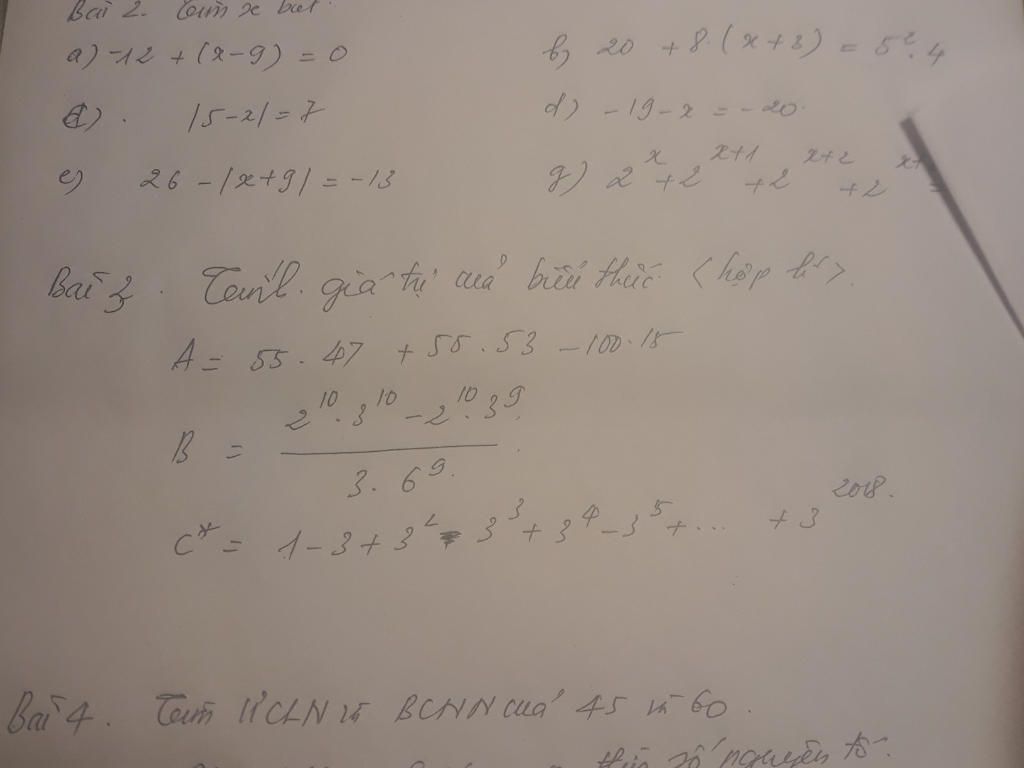 Bài 2. Tìm x biết.
a) -12 + (x-9) = 0 b) 20 + 8.(x+3) = 5².4
c). |5-x| = 7 d) -19-x = -20.
e) 26 - |x+9| = -13 g) 2^x + 2^{x+1} + 2^{x+2} + 2
Bài 3. Tính giá trị của biểu thức. <hợp lí>.
A = 55.47 + 55.53 - 100.15
B = \frac{2^{10}.3^{10} - 2^{10}.3^9}{3.6^9}.
C* = 1-3+3²-3³+3⁴-3⁵+... +3^{2018}.
Bài 4. Tìm ƯCLN và BCNN của 45 và 60.
thừa số nguyên tố.